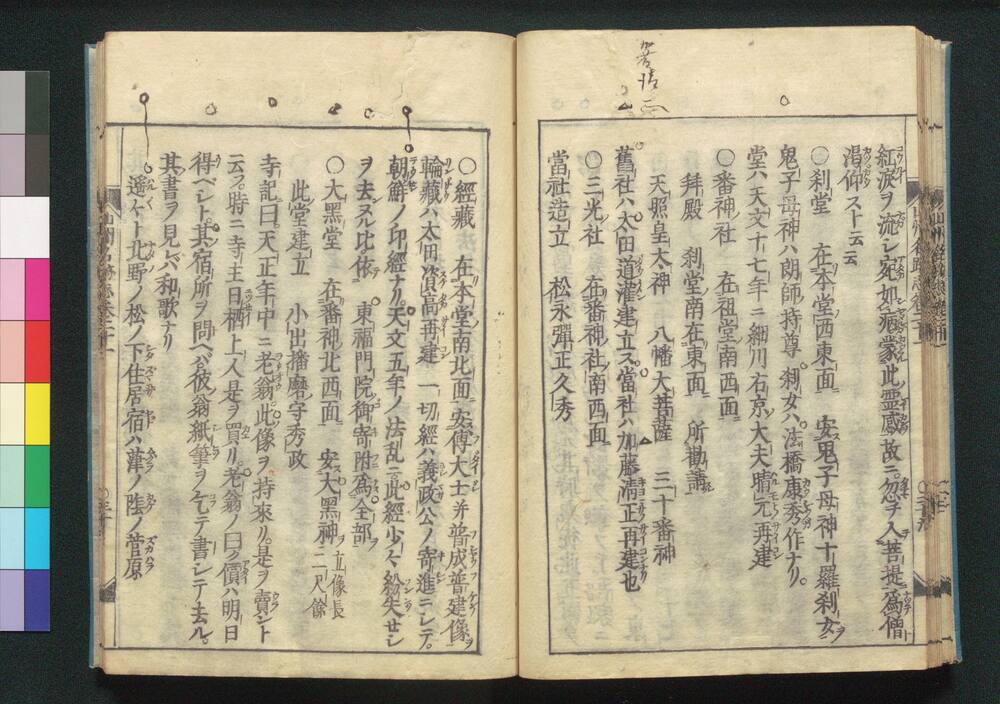 加藤清正
紅涙ヲ流シ宛如癡蒙此霊感故ニ忽チ入菩提為僧
渇仰スト云云
〇刹堂 在本堂西東面 安鬼子母神十羅刹女
鬼子母神ハ朗師持尊 刹女ハ法橋康秀作ナリ
堂ハ天文十七年ニ細川右京大夫晴元再建
〇番神社 在祖堂南西面
拜殿 刹堂南在東面 所勸請
天照皇大神 八幡大菩薩 三十番神
舊社ハ太田道灌建立ス當社ハ加藤清正再建也
〇三光社 在番神社南西面
當社造立 松永彈正久秀
〇經藏 在本堂南北面 安傅大士并普成普建像
輪藏ハ太田資高再建 一切經ハ義政公ノ寄進ニシテ
朝鮮ノ印經ナリ天文五年ノ法乱ニ此經少々紛失セシ
ヲ去ヌル比依 東福門院御寄附為全部
〇大黒堂 在番神北西面 安大黒神 立像長二尺餘
此堂建立 小出播磨守秀政
寺記曰天正年中ニ老翁此像ヲ持來リ是ヲ賣ント
云フ時ニ寺主日栖上人是ヲ買リ老翁ノ曰ク價ハ明日
得ベシト其宿所ヲ問ヘバ彼翁紙筆ヲ乞テ書シテ去ル
其書ヲ見レバ和歌ナリ
遥々ト北野ノ松ノ下住居宿ハ葎ノ陰ノ菅原